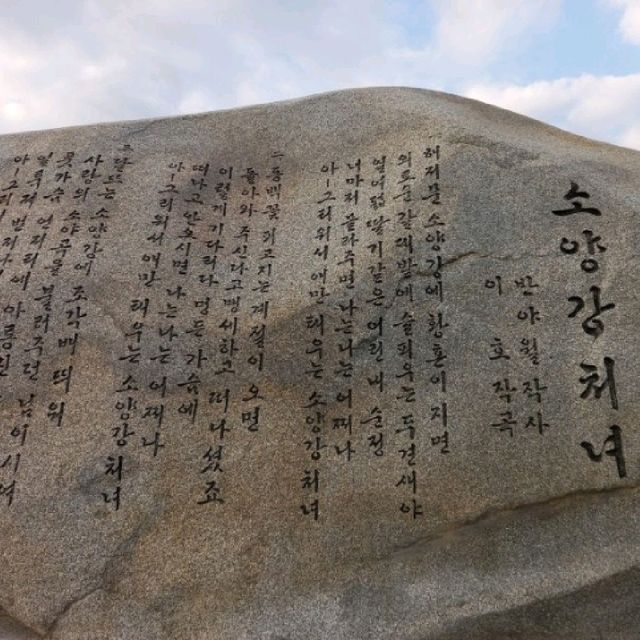 소양강처녀
반야월 작사
이 호 작곡
해저문 소양강에 황혼이 지면
외로운 갈대밭에 슬피우는 두견새야
열여덟 딸기같은 어린내 순정
너마저 몰라주면 나는나는 어쩌나
아-그리워서 애만 태우는 소양강 처녀
동백꽃 피고지는 계절이 오면
돌아와 주신다고 맹세하고 떠나셨죠
이렇게 기다리다 멍든가슴에
떠나고 안오시면 나는나는 어쩌나
아-그리워서 애만 태우는 소양강 처녀
소양강에 조각배 띄워
사랑의 소야곡을 불러주던 님이시여